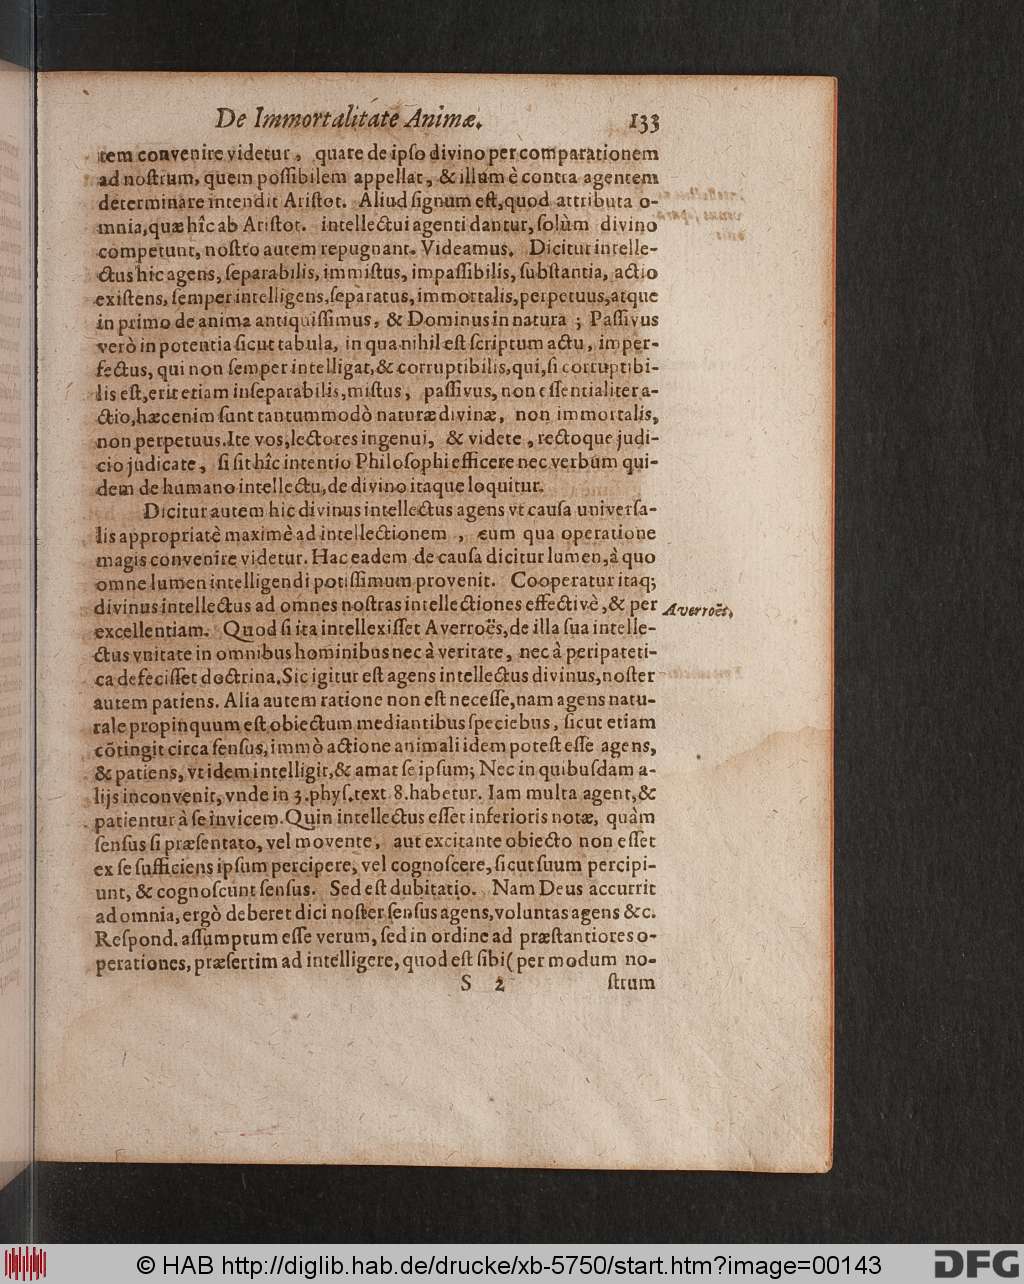 De Immortalitate Animæ. 133
tem convenire videtur, quare de ipſo divino per comparationem
ad noſtrum, quem poſſibilem appellat, & illum è contra agentem
determinare intendit Ariſtot. Aliud ſignum eſt, quod attributa o-
mnia, quæ hîc ab Ariſtot. intellectui agenti dantur, ſolùm divino
competunt, noſtro autem repugnant. Videamus. Dicitur intelle-
ctus hic agens, ſeparabilis, immiſtus, impaſſibilis, ſubſtantia, actio
exiſtens, ſemper intelligens, ſeparatus, immortalis, perpetuus, atque
in primo de anima antiquiſſimus, & Dominus in natura ; Paſſivus
verò in potentia ſicut tabula, in qua nihil eſt ſcriptum actu, imper-
fectus, qui non ſemper intelligat, & corruptibilis, qui, ſi corruptibi-
lis eſt, erit etiam inſeparabilis, miſtus, paſſivus, non eſſentialiter a-
ctio, hæc enim ſunt tantummodò naturæ divinæ, non immortalis,
non perpetuus. Ite vos, lectores ingenui, & videte, rectoque judi-
cio judicate, ſi ſit hîc intentio Philoſophi efficere nec verbum qui-
dem de humano intellectu, de divino itaque loquitur.
Dicitur autem hic divinus intellectus agens vt cauſa univerſa-
lis appropriatè maximè ad intellectionem , cum qua operatione
magis convenire videtur. Hac eadem de cauſa dicitur lumen, à quo
omne lumen intelligendi potiſſimum provenit. Cooperatur itaq;
divinus intellectus ad omnes noſtras intellectiones effectivè, & per
Averroës.
excellentiam. Quod ſi ita intellexiſſet Averroës, de illa ſua intelle-
ctus vnitate in omnibus hominibus nec à veritate, nec à peripateti-
ca defeciſſet doctrina. Sic igitur eſt agens intellectus divinus, noſter
autem patiens. Alia autem ratione non eſt neceſſe, nam agens natu-
rale propinquum eſt obiectum mediantibus ſpeciebus, ſicut etiam
cõtingit circa ſenſus, immò actione animali idem poteſt eſſe agens,
& patiens, vt idem intelligit, & amat ſe ipſum; Nec in quibuſdam a-
lijs inconvenit, vnde in 3. phyſ. text 8. habetur. Iam multa agent, &
patientur à ſe invicem. Quin intellectus eſſet inferioris notæ, quàm
ſenſus ſi præſentato, vel movente, aut excitante obiecto non eſſet
ex ſe ſufficiens ipſum percipere, vel cognoſcere, ſicut ſuum percipi-
unt, & cognoſcunt ſenſus. Sed eſt dubitatio. Nam Deus accurrit
ad omnia, ergò deberet dici noſter ſenſus agens, voluntas agens &c.
Reſpond. aſſumptum eſſe verum, ſed in ordine ad præſtantiores o-
perationes, præſertim ad intelligere, quod eſt ſibi ( per modum no-
S 2 ſtrum
© HAB http://diglib.hab.de/drucke/xb-5750/start.htm?image=00143
DFG